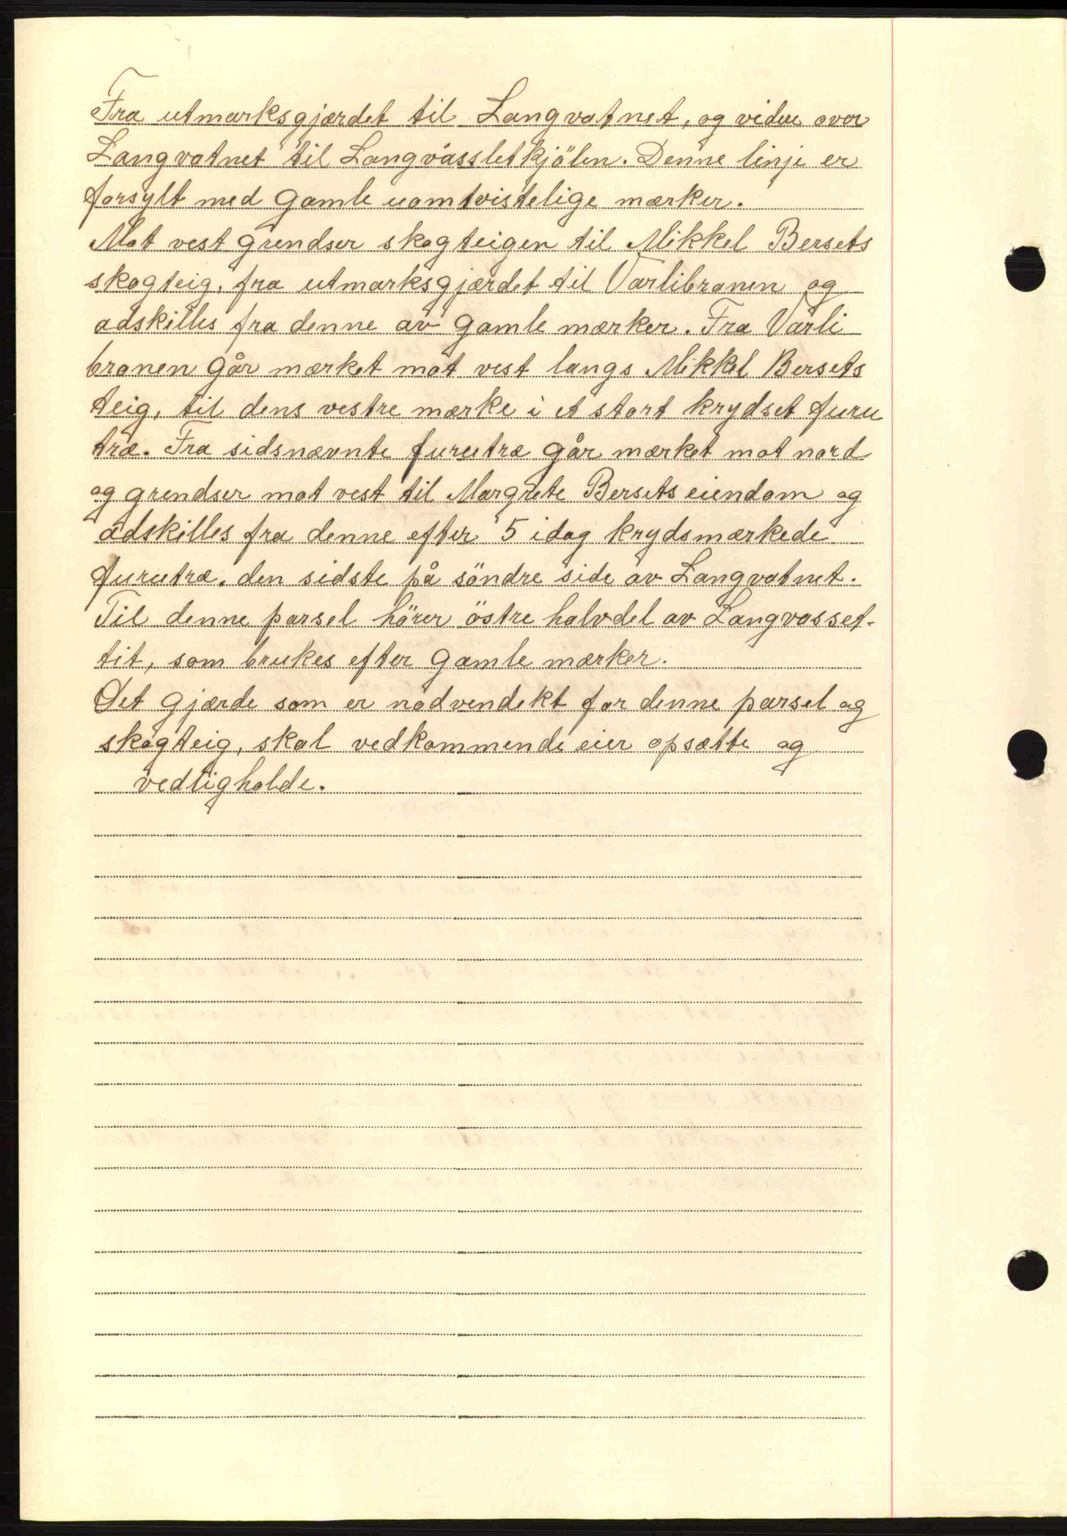 Fra utmarksgjærdet til Langvatnet, og videre over
Langvatnet til Langvássletkjölen. Denne linje er
forsylt med gamle uomtvistelige mærker.
Mot vest grendser skogteigen til Mikkel Bersets
skogteig, fra utmarksgjærdet til Varlibranen og
adskilles fra denne av gamle mærker. Fra Varli
branen går mærket mot vest langs Mikkel Bersets
teig, til dens vestre mærke i et stort krydset furu
træ. Fra sidsnævnte furutræ går mærket mot nord
og grendser mot vest til Margrete Bersets eiendom og
adskilles fra denne efter 5 idag krydsmærkede
furutræ, den sidste på söndre side av Langvatnet.
Til denne parsel hörer östre halvdel av Langvasset-
tit, som brukes efter gamle mærker.
Det gjærde som er nödvendekt for denne parsel og
skogteig, skal vedkommende eier opsætte og
vedligholde.